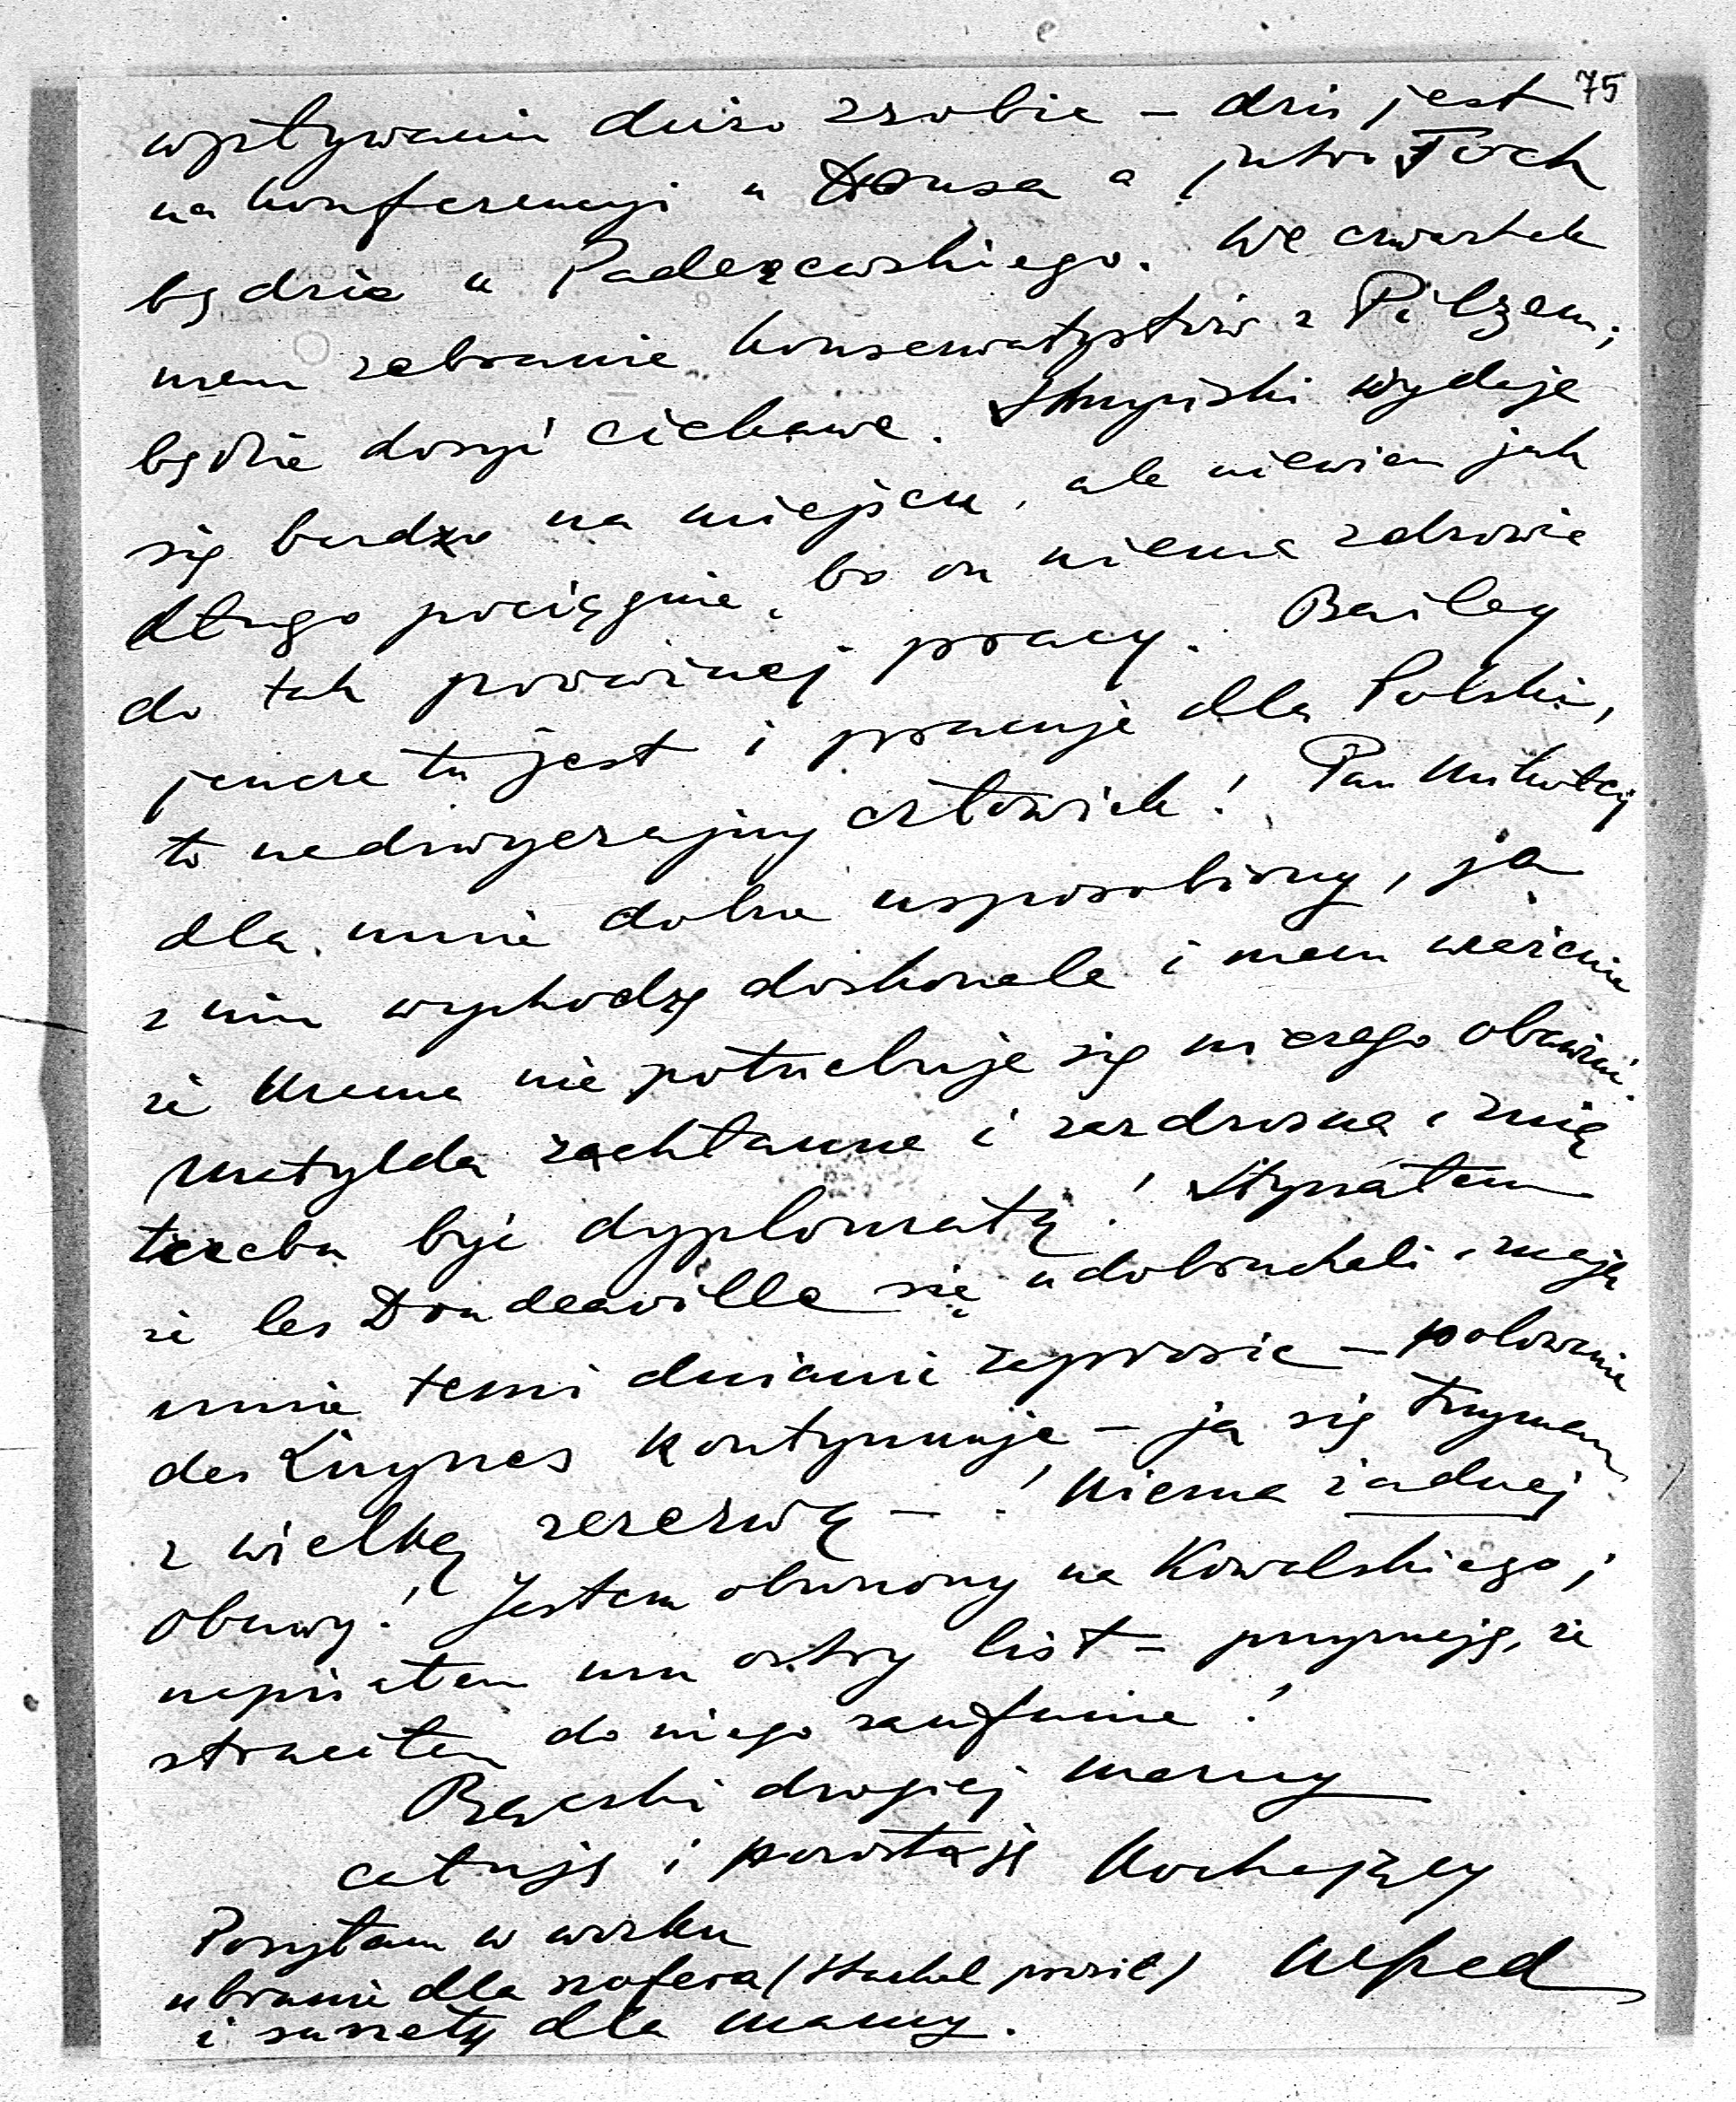 75
wpływami dużo zrobić – dziś jest
na konferencyi u Housa a jutro Foch
będzie u Paderewskiego. We czwartek
mam zebranie konserwatystów z Pilzem,
będzie dosyć ciekawe. Skrzyński wydaje
się bardzo na miejscu, ale niewiem jak
długo pociągnie, bo on niema zdrowia
do tak poważnej pracy. Bailey
jeszcze tu jest i pracuje dla Polski,
to nadzwyczajny człowiek! Pan Mikołaj
dla mnie dobrze usposobiony, ja
z nim wychodzę doskonale i mam wrażenie
że Mama nie potrzebuje się niczego obawiać.
Matylda zachłanna i zazdrosna, z nią
trzeba być dyplomatą! Słyszałem
że les Doudeauville się udobruchali i mają
mnie temi dniami zaprosić – polowanie
des Luynes kontynuuje – ja się trzymam
z wielką rezerwą – ! Niema żadnej
obawy! Jestem oburzony na Kowalskiego;
napisałem mu ostry list – przyznaję, że
straciłem do niego zaufanie!
Rączki drogiej Mamy
całuję i pozostaję kochający
Alfred
Posyłam w worku
ubranie dla szofera (Stachel prosił)
i dla mamy.